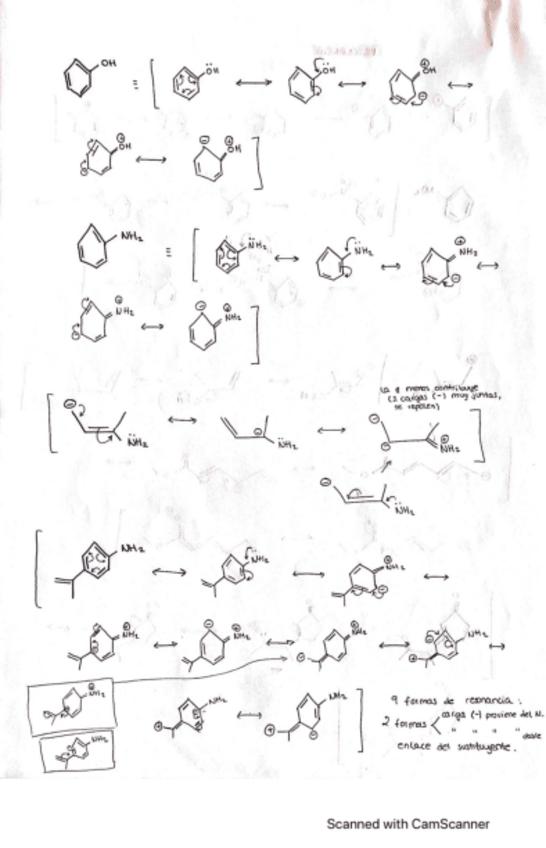 OH = [ ÖH ↔ ÖH ↔ ⊕ OH ↔
⊖ ⊕ OH ↔ ⊖ ⊕ OH ]
NH₂ = [ N̈H₂ ↔ N̈H₂ ↔ ⊕ NH₂ ⊖ ↔
⊖ ⊕ NH₂ ↔ ⊖ ⊕ NH₂ ]
La q menos contribuye
(2 cargas (-) muy juntas,
se repelen)
[ ⊖ N̈H₂ ↔ ⊖ N̈H₂ ↔ ⊖ ⊖ ⊕ NH₂ ]
⊖ N̈H₂
[ NH₂ ↔ N̈H₂ ↔ ⊕ NH₂ ⊖ ↔
⊖ ⊕ NH₂ ↔ ⊖ ⊕ NH₂ ↔ ⊖ ⊕ NH₂ ↔ ⊕ NH₂ ↔
⊖ ⊕ NH₂
⊕ NH₂ ↔ ⊕ NH₂ ⊖ ]
NH₂
9 formas de resonancia:
2 formas < carga (-) proviene del N.
" " " " doble
enlace del sustituyente.
Scanned with CamScanner